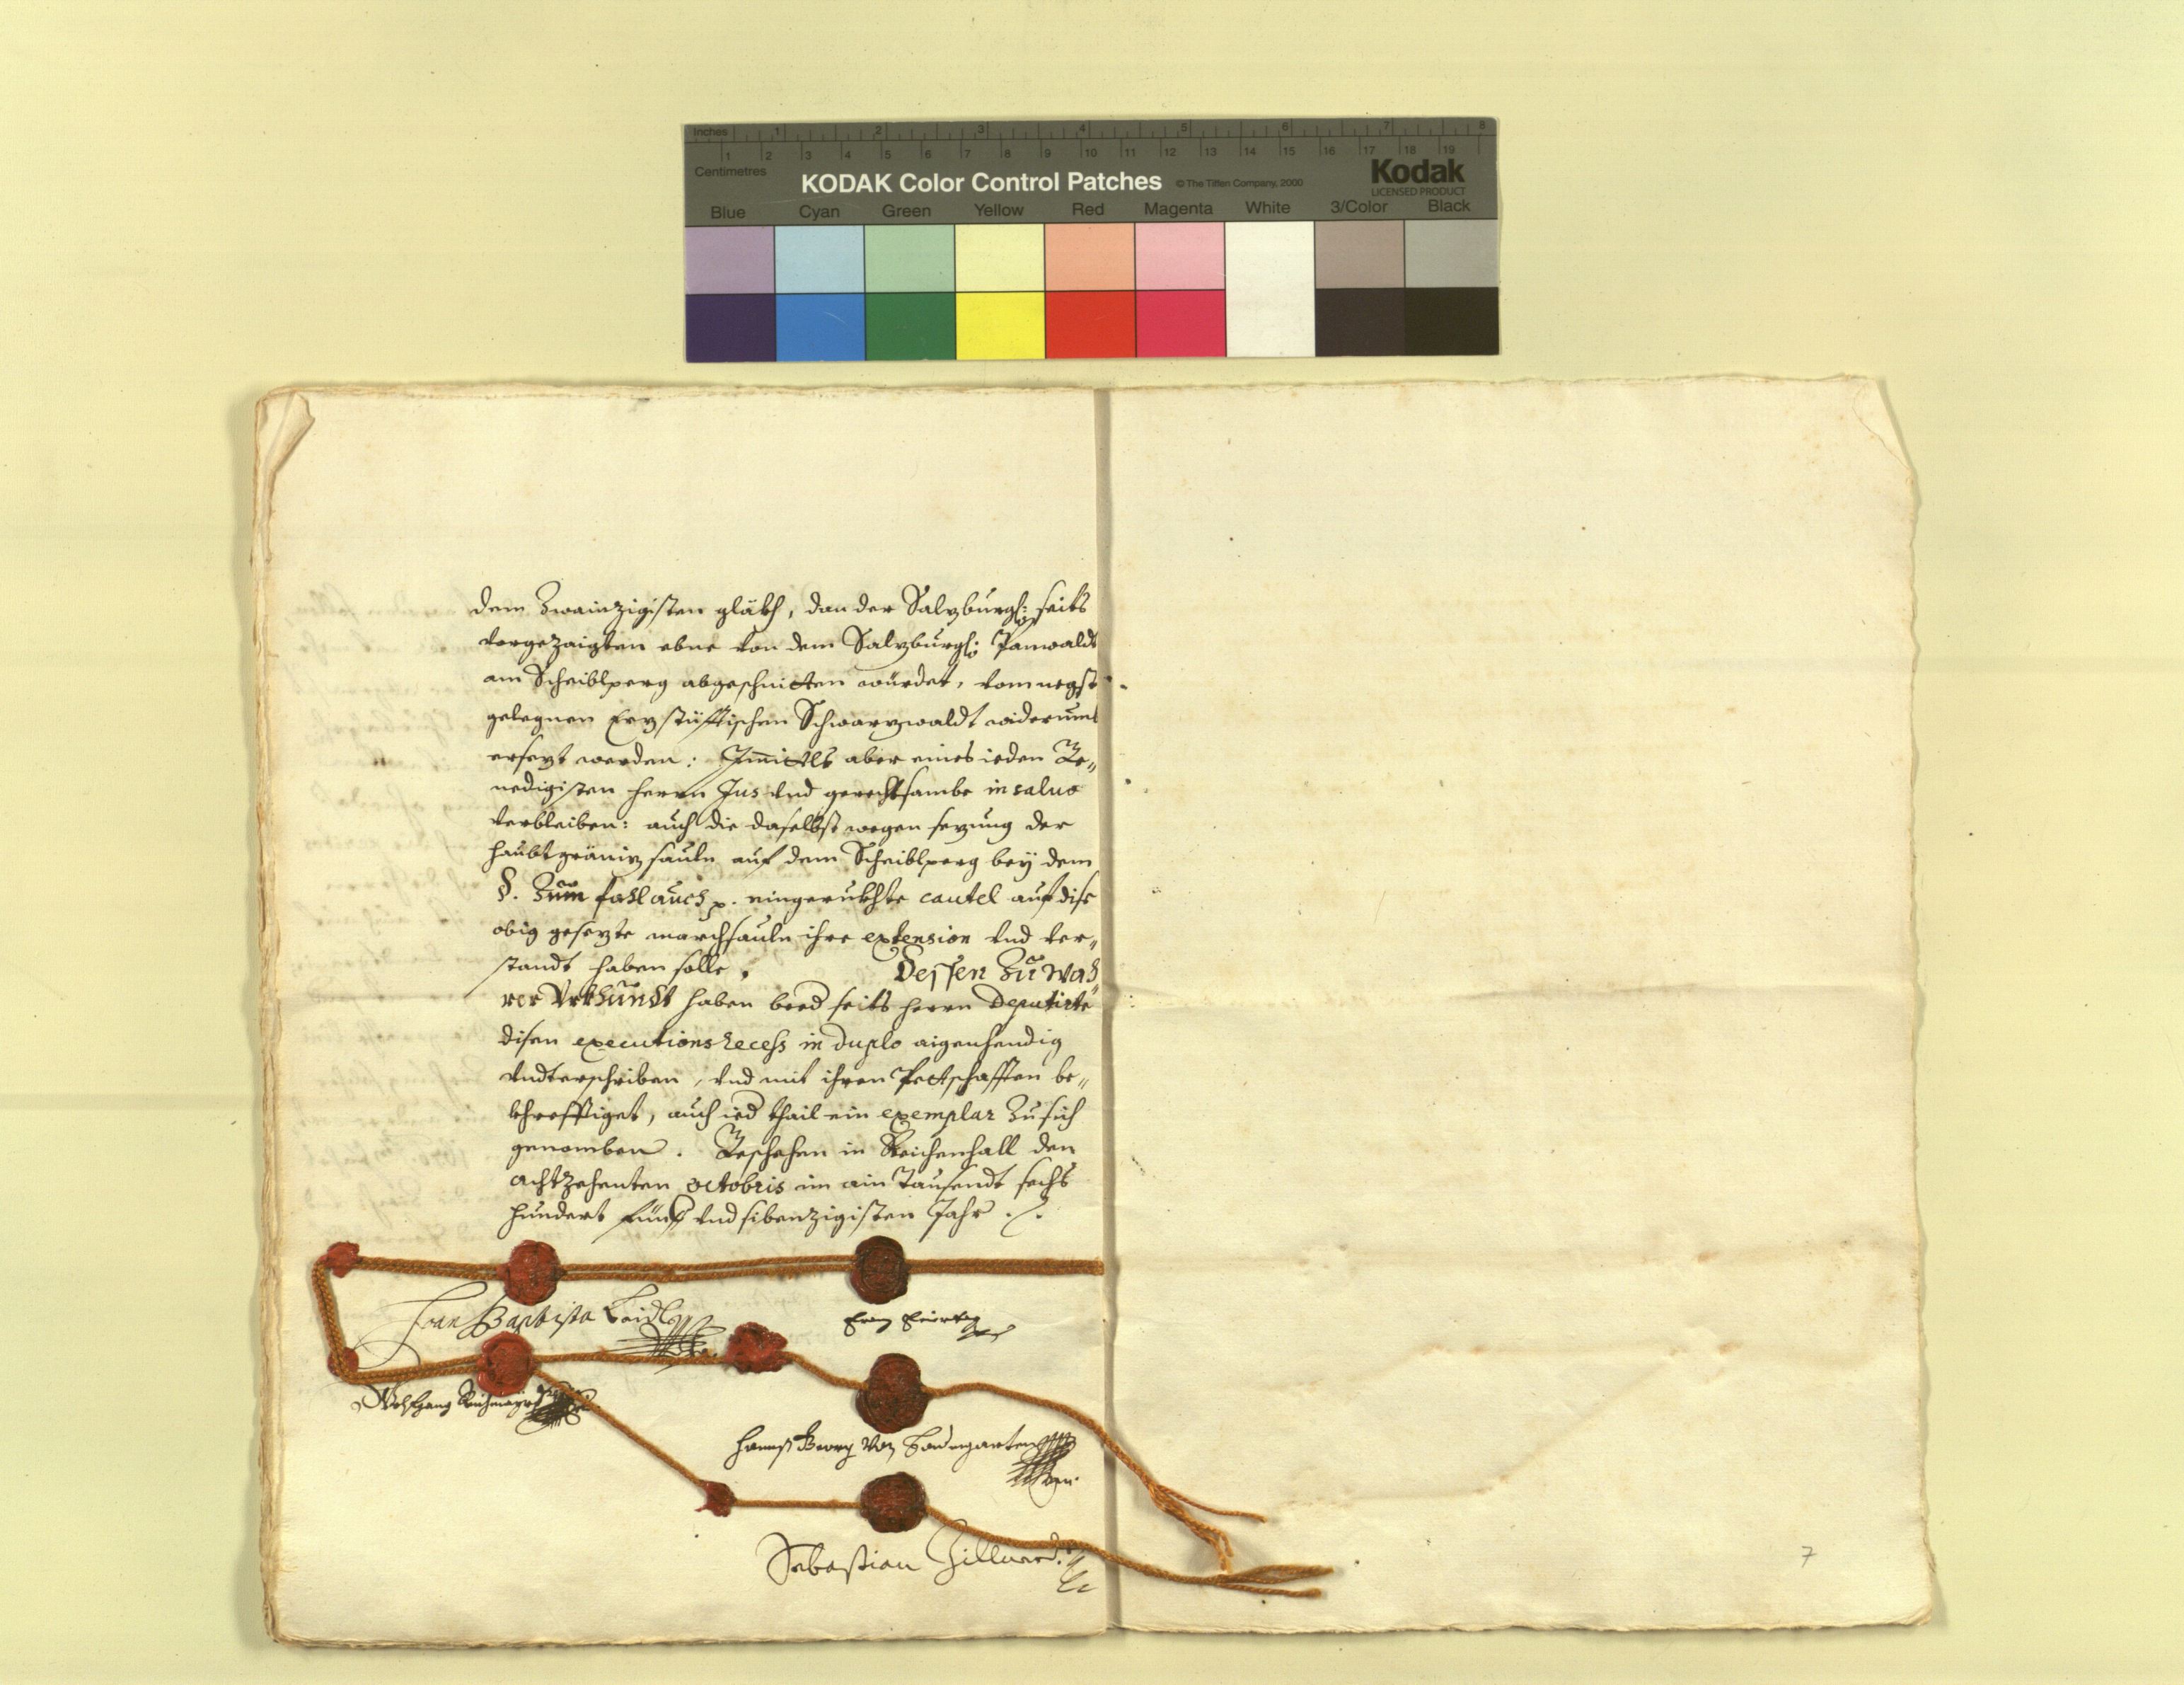 Inches 1 2 3 4 5 6 7 8
1 2 3 4 5 6 7 8 9 10 11 12 13 14 15 16 17 18 19
Centimetres
KODAK Color Control Patches © The Tiffen Company, 2000 Kodak
LICENSED PRODUCT
Blue Cyan Green Yellow Red Magenta White 3/Color Black
dem Zwainzigisten gläkh, dan der Salzburg: seits
vorgezaigten ebne von dem Salzburg: Panwaldt
am Scheiblperg abgeschnitten würdet, vom negst
gelegnen Erzstüfftischen Schwarzwaldt widerumb
ersezt werden: Immitls aber eines ieden Ge„
nedigisten Herrn Jus vnd gerechtsambe in saluo
verbleiben: auch die daselbst wegen sezung der
haubt gräniz sauln auf dem Scheiblperg bey dem
§. Zum fahl auch p. eingerukhte cautel auf dise
obig gesezte marchsauln ihre extension vnd ver„
standt haben solle. Dessen Zu wah„
rer Vrkhundt haben beed seits herrn Deputirte
disen executions Recess in duplo aigenhendig
vndterschriben, vnd mit ihren Pettschafften be„
khrefftiget, auch ied thail ein exemplar Zu sich
genomben. Geschehen in Reichenhall den
achtzehenten octobris im ain Tausendt sechs
hundert fünf vnd sibenzigisten Jahr ./.
Joan Baptista
Franz
Wolfgang
Hannß Georg von
Sebastian
7